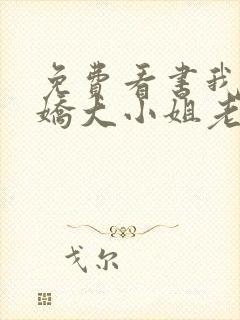 免费看书我
娇大小姐老
戈尔